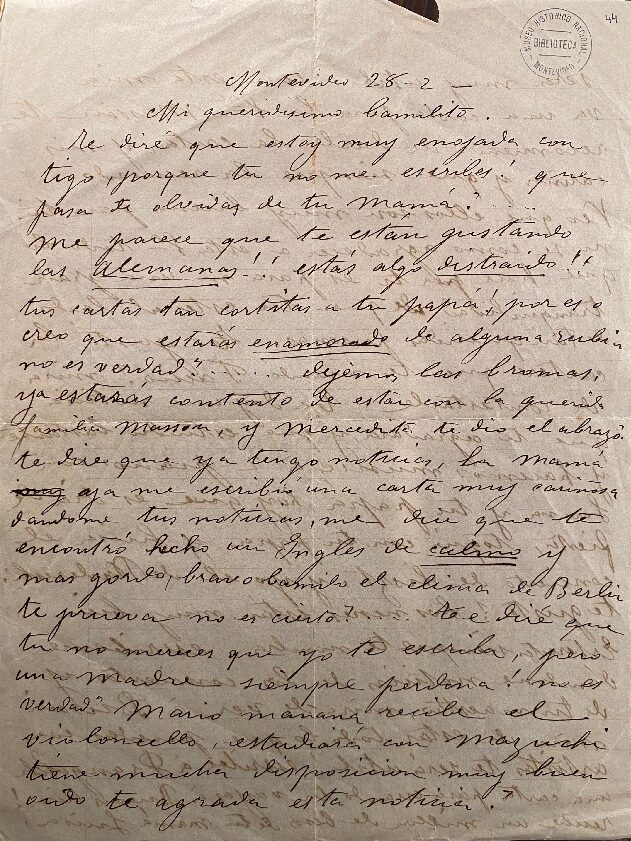 44
MUSEO HISTORICO NACIONAL
BIBLIOTECA
MONTEVIDEO
Montevideo 28-2-
Mi queridisimo Camilito.
Te diré que estoy muy enojada con
tigo, porque tu no me escribes! que
pasa te olvidas de tu Mamá? ....
me parece que te están gustando
las Alemanas!! estás algo distraido!!
tus cartas tan cortitas a tu papá, por eso
creo que estarás enamorado de alguna rubia
no es verdad? .... dejemos las bromas,
ya estarás contento de estar con la querida
familia Masson, y Mercedita te dio el abrazo.
te dire que ya tengo noticias, la Mamá
ya me escribió una carta muy cariñosa
dandome tus noticias, me dice que te
encontró hecho un Ingles de calmo y
mas gordo, bravo Camilo el clima de Berlin
te prueva no es cierto? .... te e dire que
tu no mereces que yo te escriba, pero
una Madre siempre perdona! no es
verdad? Mario mañana recibe el
violoncello, estudiará con Mazuchi
tiene mucha disposicion muy buen
oido te agrada esta noticia?